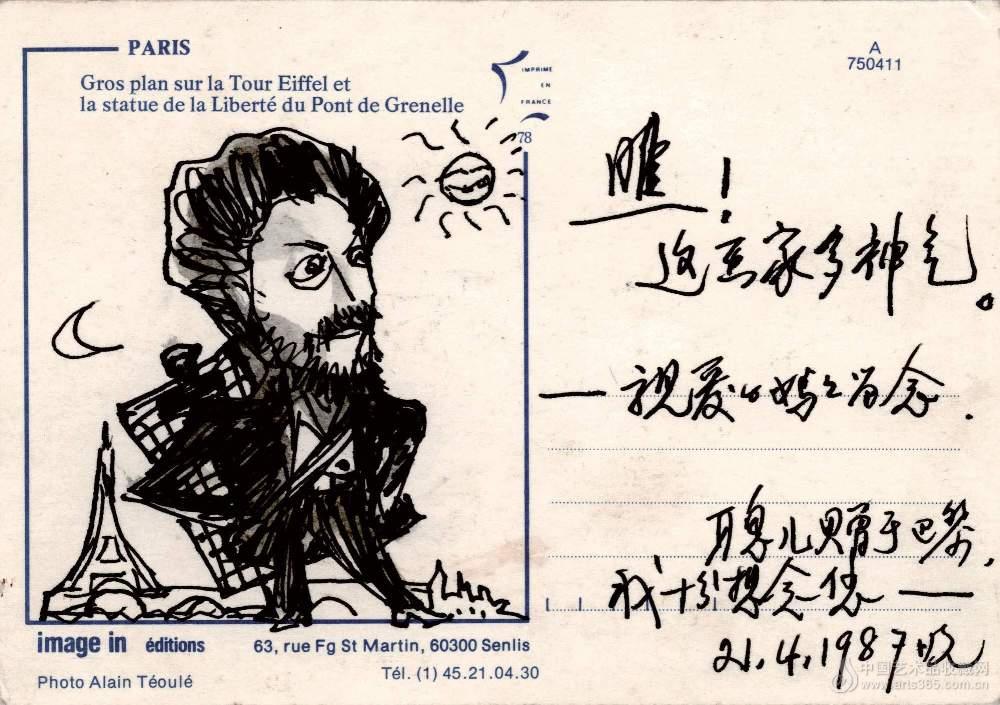 PARIS
Gros plan sur la Tour Eiffel et
la statue de la Liberté du Pont de Grenelle
IMPRIME
EN
FRANCE
78
A
750411
瞧！
这画家多神气。
— 亲爱的妈妈留念.
聪儿赠于巴黎,
我十分想念您 —
21.4.1987晚
image in éditions
63, rue Fg St Martin, 60300 Senlis
Tél. (1) 45.21.04.30
Photo Alain Téoulé
中国艺术品收藏网
www.arts365.com.cn